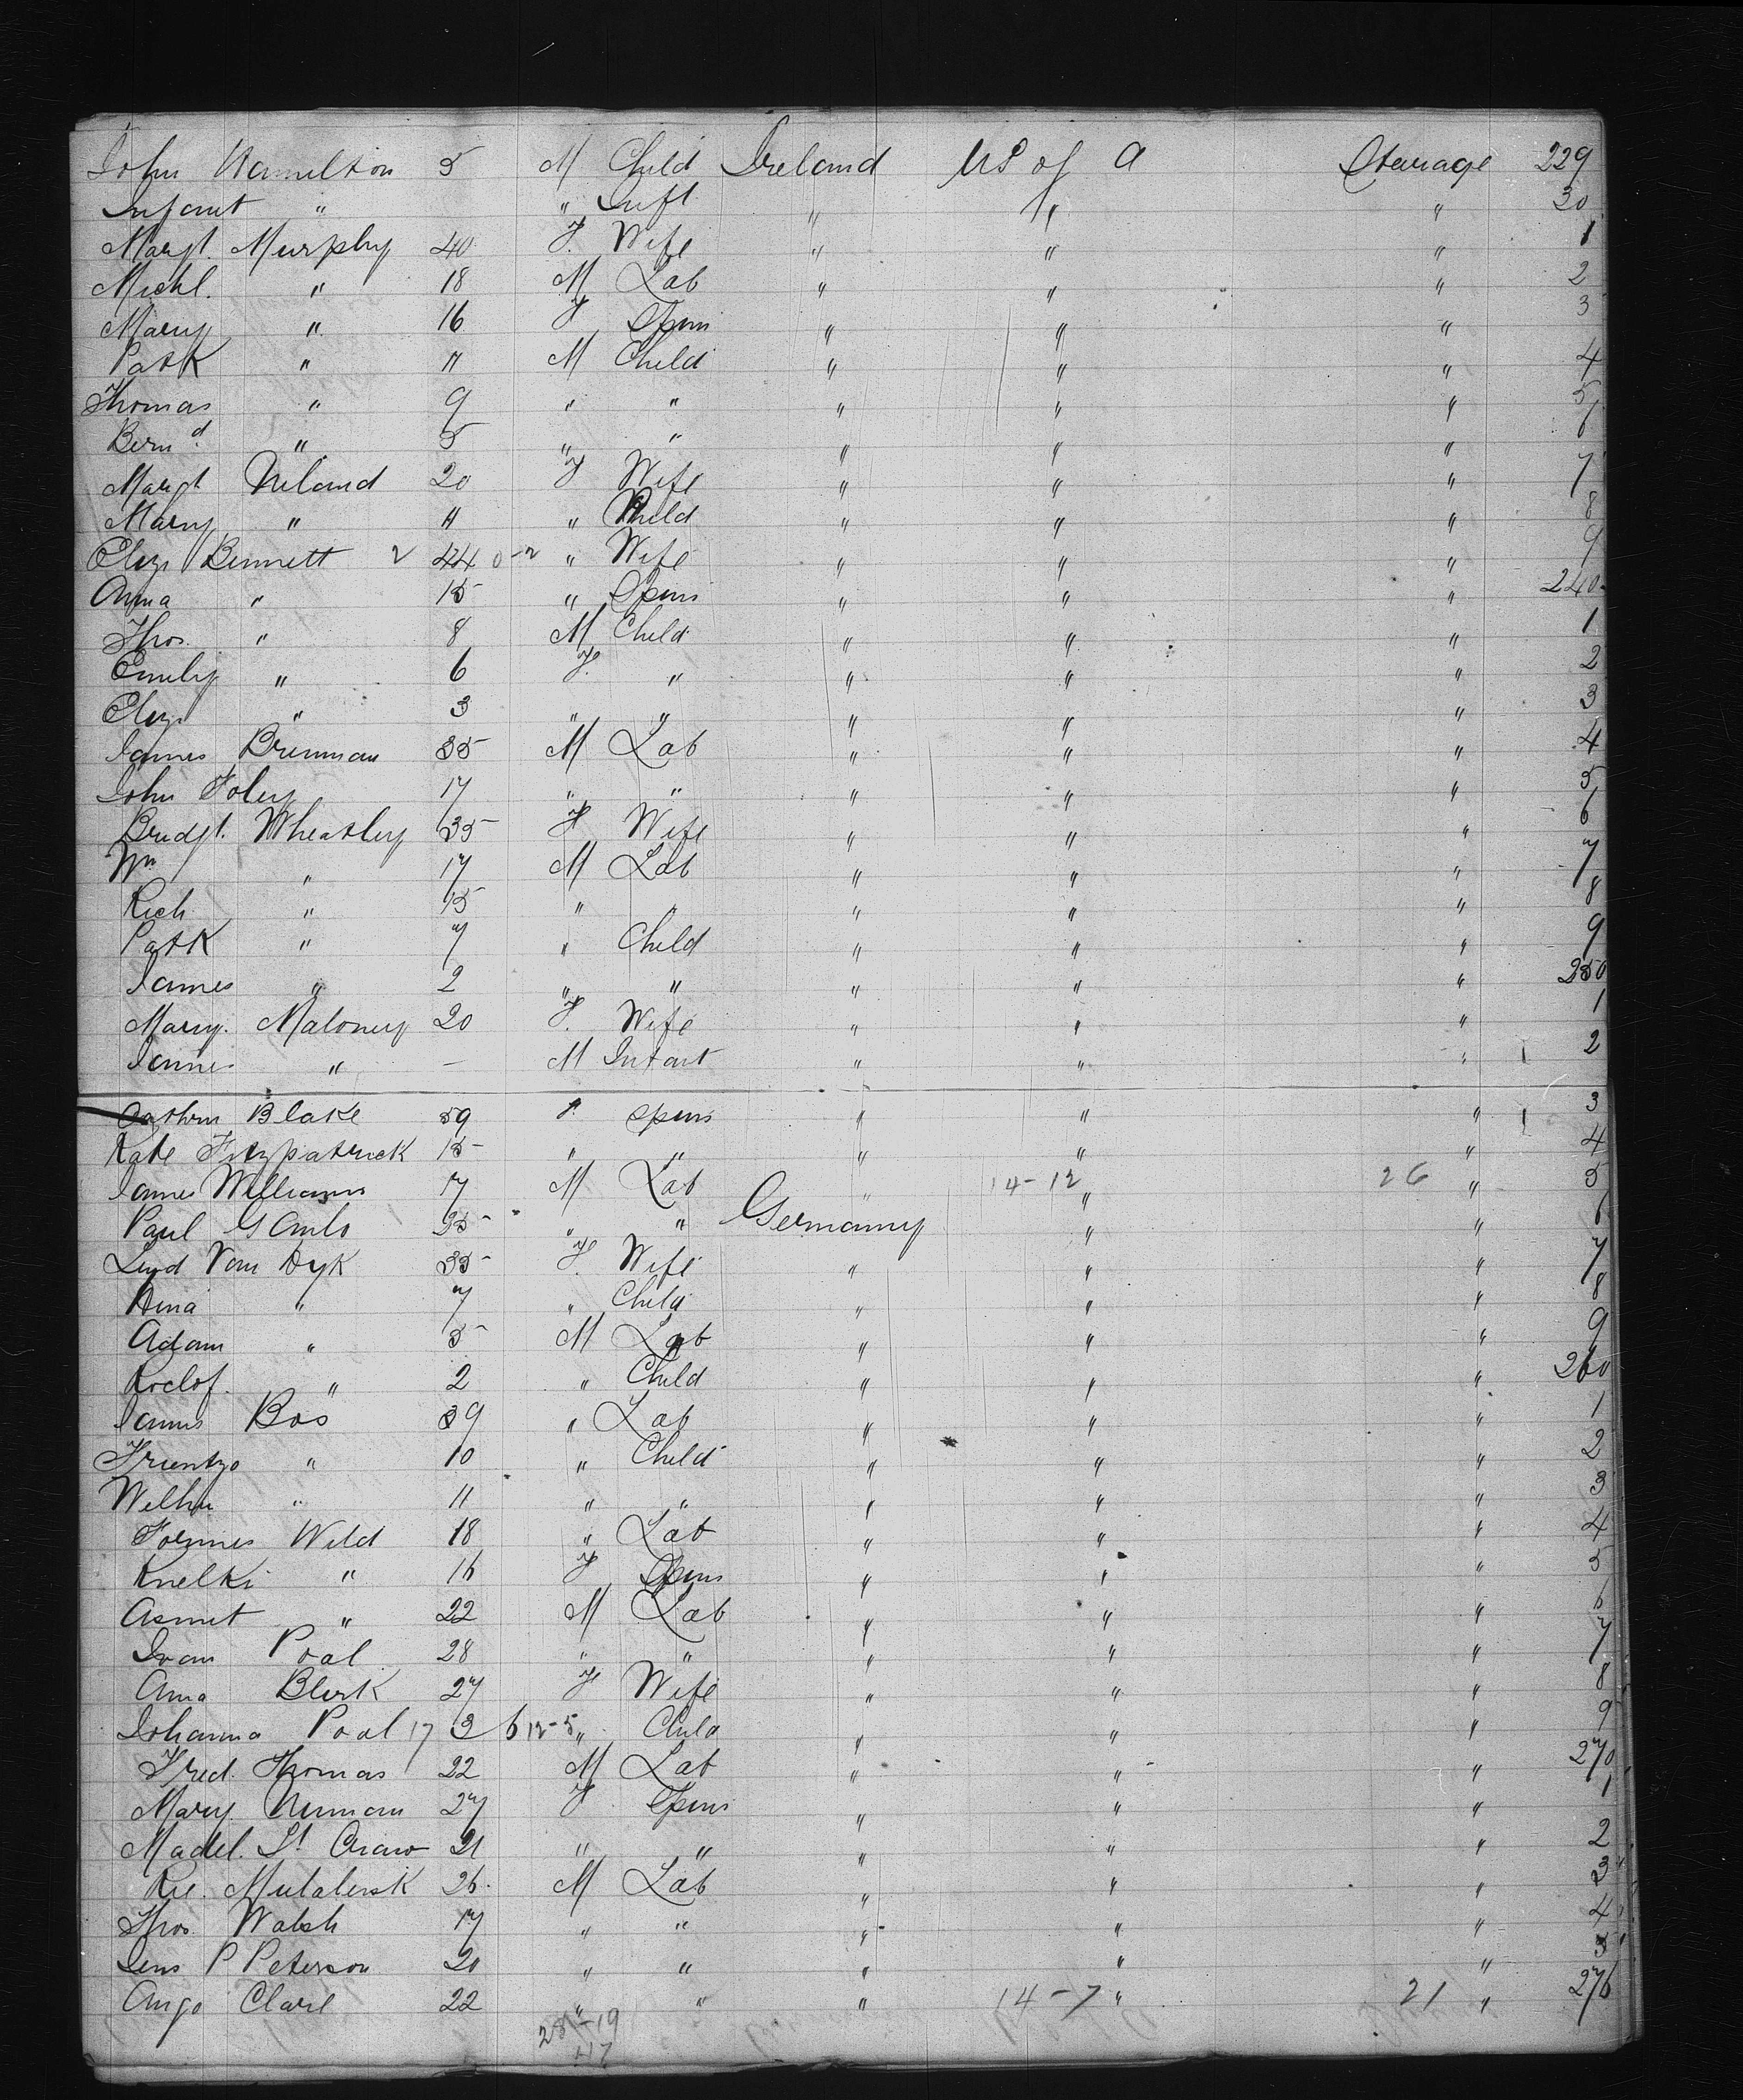 John Hamilton 5 M Child Ireland US of A Stearage 229
Infant " " Inft " " " 30
Margt. Murphy 40 F. Wife " " " 1
Michl. " 18 M Lab " " " 2
Mary " 16 F Spin " " " 3
Patk " 11 M Child " " " 4
Thomas " 9 " " " " " 5
Bernd. " 5 " " " " " 6
Margt Neland 20 F Wife " " " 7
Mary " 11 " Child " " " 8
Eliza Bennett 2 44 0-2 " Wife " " " 9
Anna " 15 " Spins " " " 240
Thos. " 8 M Child " " " 1
Emily " 6 F. " " " " 2
Eliza " 3 " " " " " 3
James Brennan 35 M Lab " " " 4
John Foley 17 " " " " " 5
Bridgt. Wheatley 35 F Wife " " " 6
Wm " 17 M Lab " " " 7
Rich " 15 " " " " " 8
Patk " 7 " Child " " " 9
James " 2 " " " " " 250
Mary. Maloney 20 F. Wife " " " 1
James " - M Infant " " " 1 2
Cathrn Blake 59 F. Spins " " " 1 3
Kate Fitzpatrick 15 " " " " " 4
James Williams 17 M Lab " 14-12 " 26 " 5
Paul 35 " " Germany " " 6
Van Dyk 35 F. Wife " " " 7
" 7 " Child " " " 8
Adam " 5 M Lab " " " 9
Roelof. " 2 " Child " " " 260
Bos 39 " Lab " " " 1
" 10 " Child " " " 2
Wilhm " 11 " " " " " 3
Wild 18 " Lab " " " 4
Knelki " 16 F Spins " " " 5
Asmut " 22 M Lab " " " 6
Poal 28 " " " " " 7
Anna Blerk 27 F Wife " " " 8
Johanna Poal 17 3 6 12-5 " Child " " " 9
Fred. Thomas 22 M Lab " " " 270
Mary. Numan 27 F. Spins " " " 1
Madel. St. 21 " " " " " 2
26. M Lab " " " 3
Thos. Walsh 17 " " " " " 4
Jens P Peterson 20 " " " " " 5
Clare 22 " " " 14-7 " 21 " 276
28-19
47